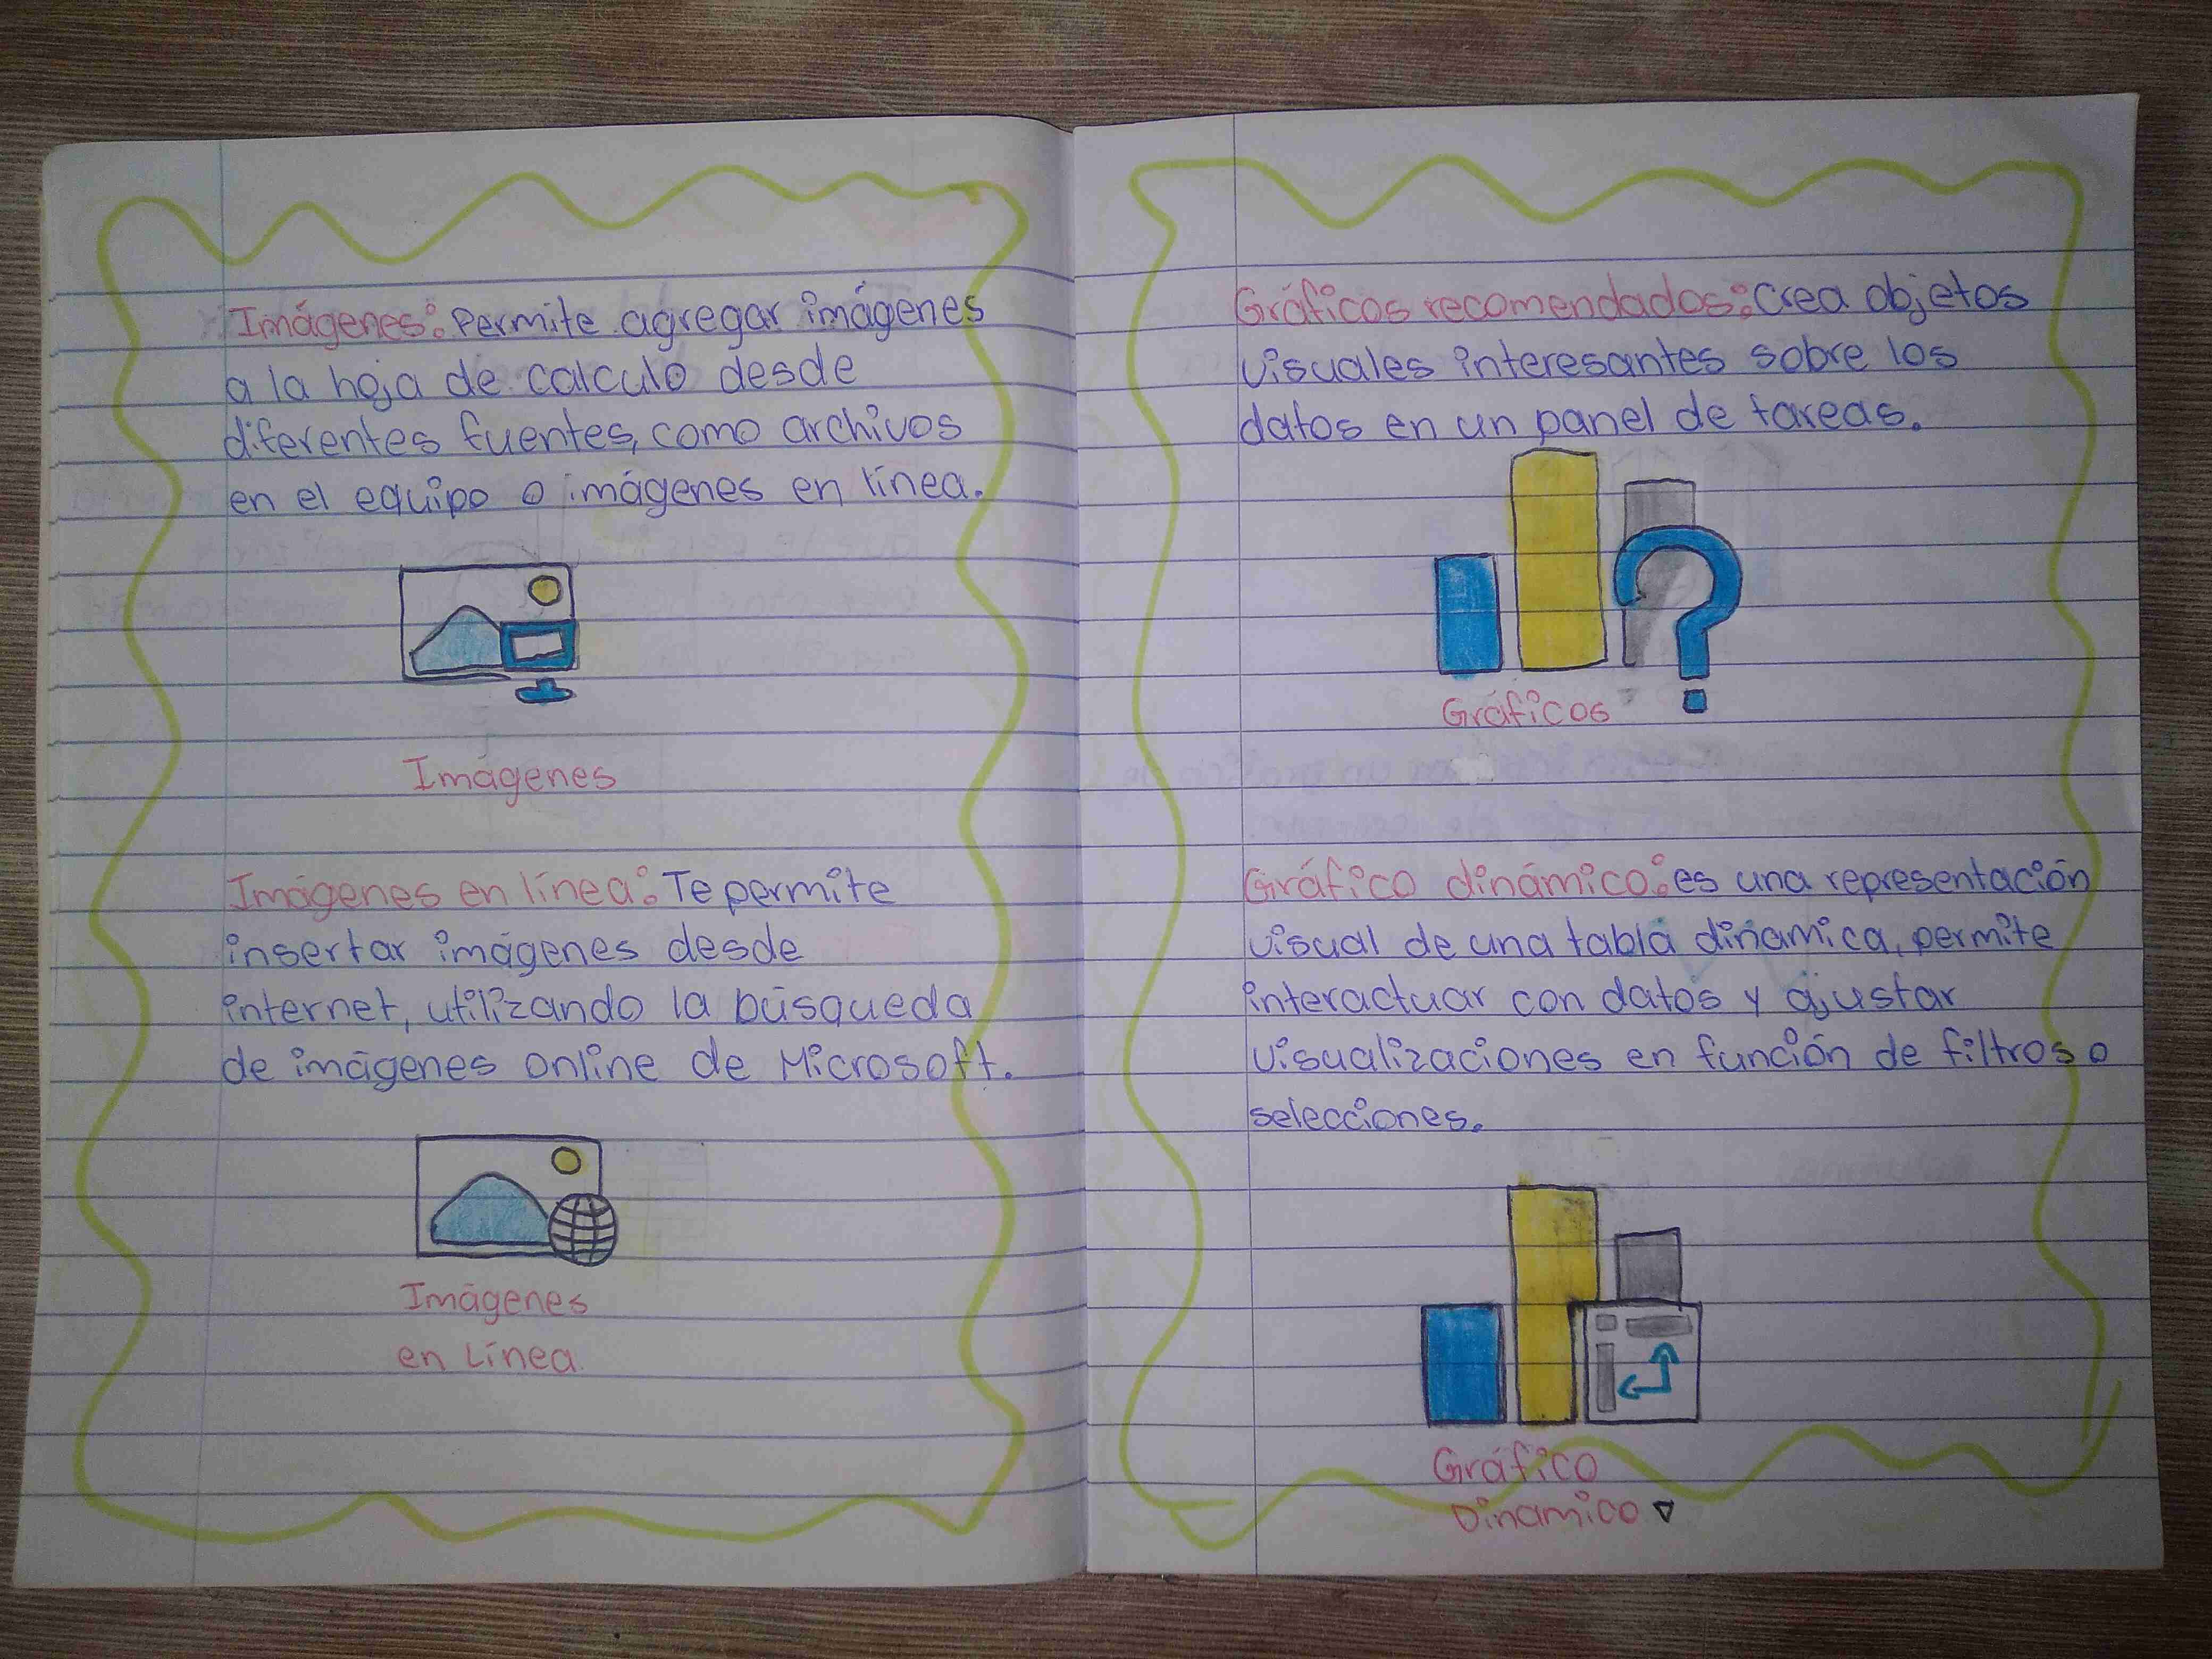 Imágenes: Permite agregar imágenes
a la hoja de calculo desde
diferentes fuentes, como archivos
en el equipo o imágenes en línea.
Imágenes
Imágenes en línea: Te permite
insertar imágenes desde
internet, utilizando la búsqueda
de imágenes online de Microsoft.
Imágenes
en Línea.
Gráficos recomendados: Crea objetos
visuales interesantes sobre los
datos en un panel de tareas.
Gráficos
Gráfico dinámico: es una representación
visual de una tabla dinamica, permite
interactuar con datos y ajustar
visualizaciones en función de filtros o
selecciones.
Gráfico
Dinamico